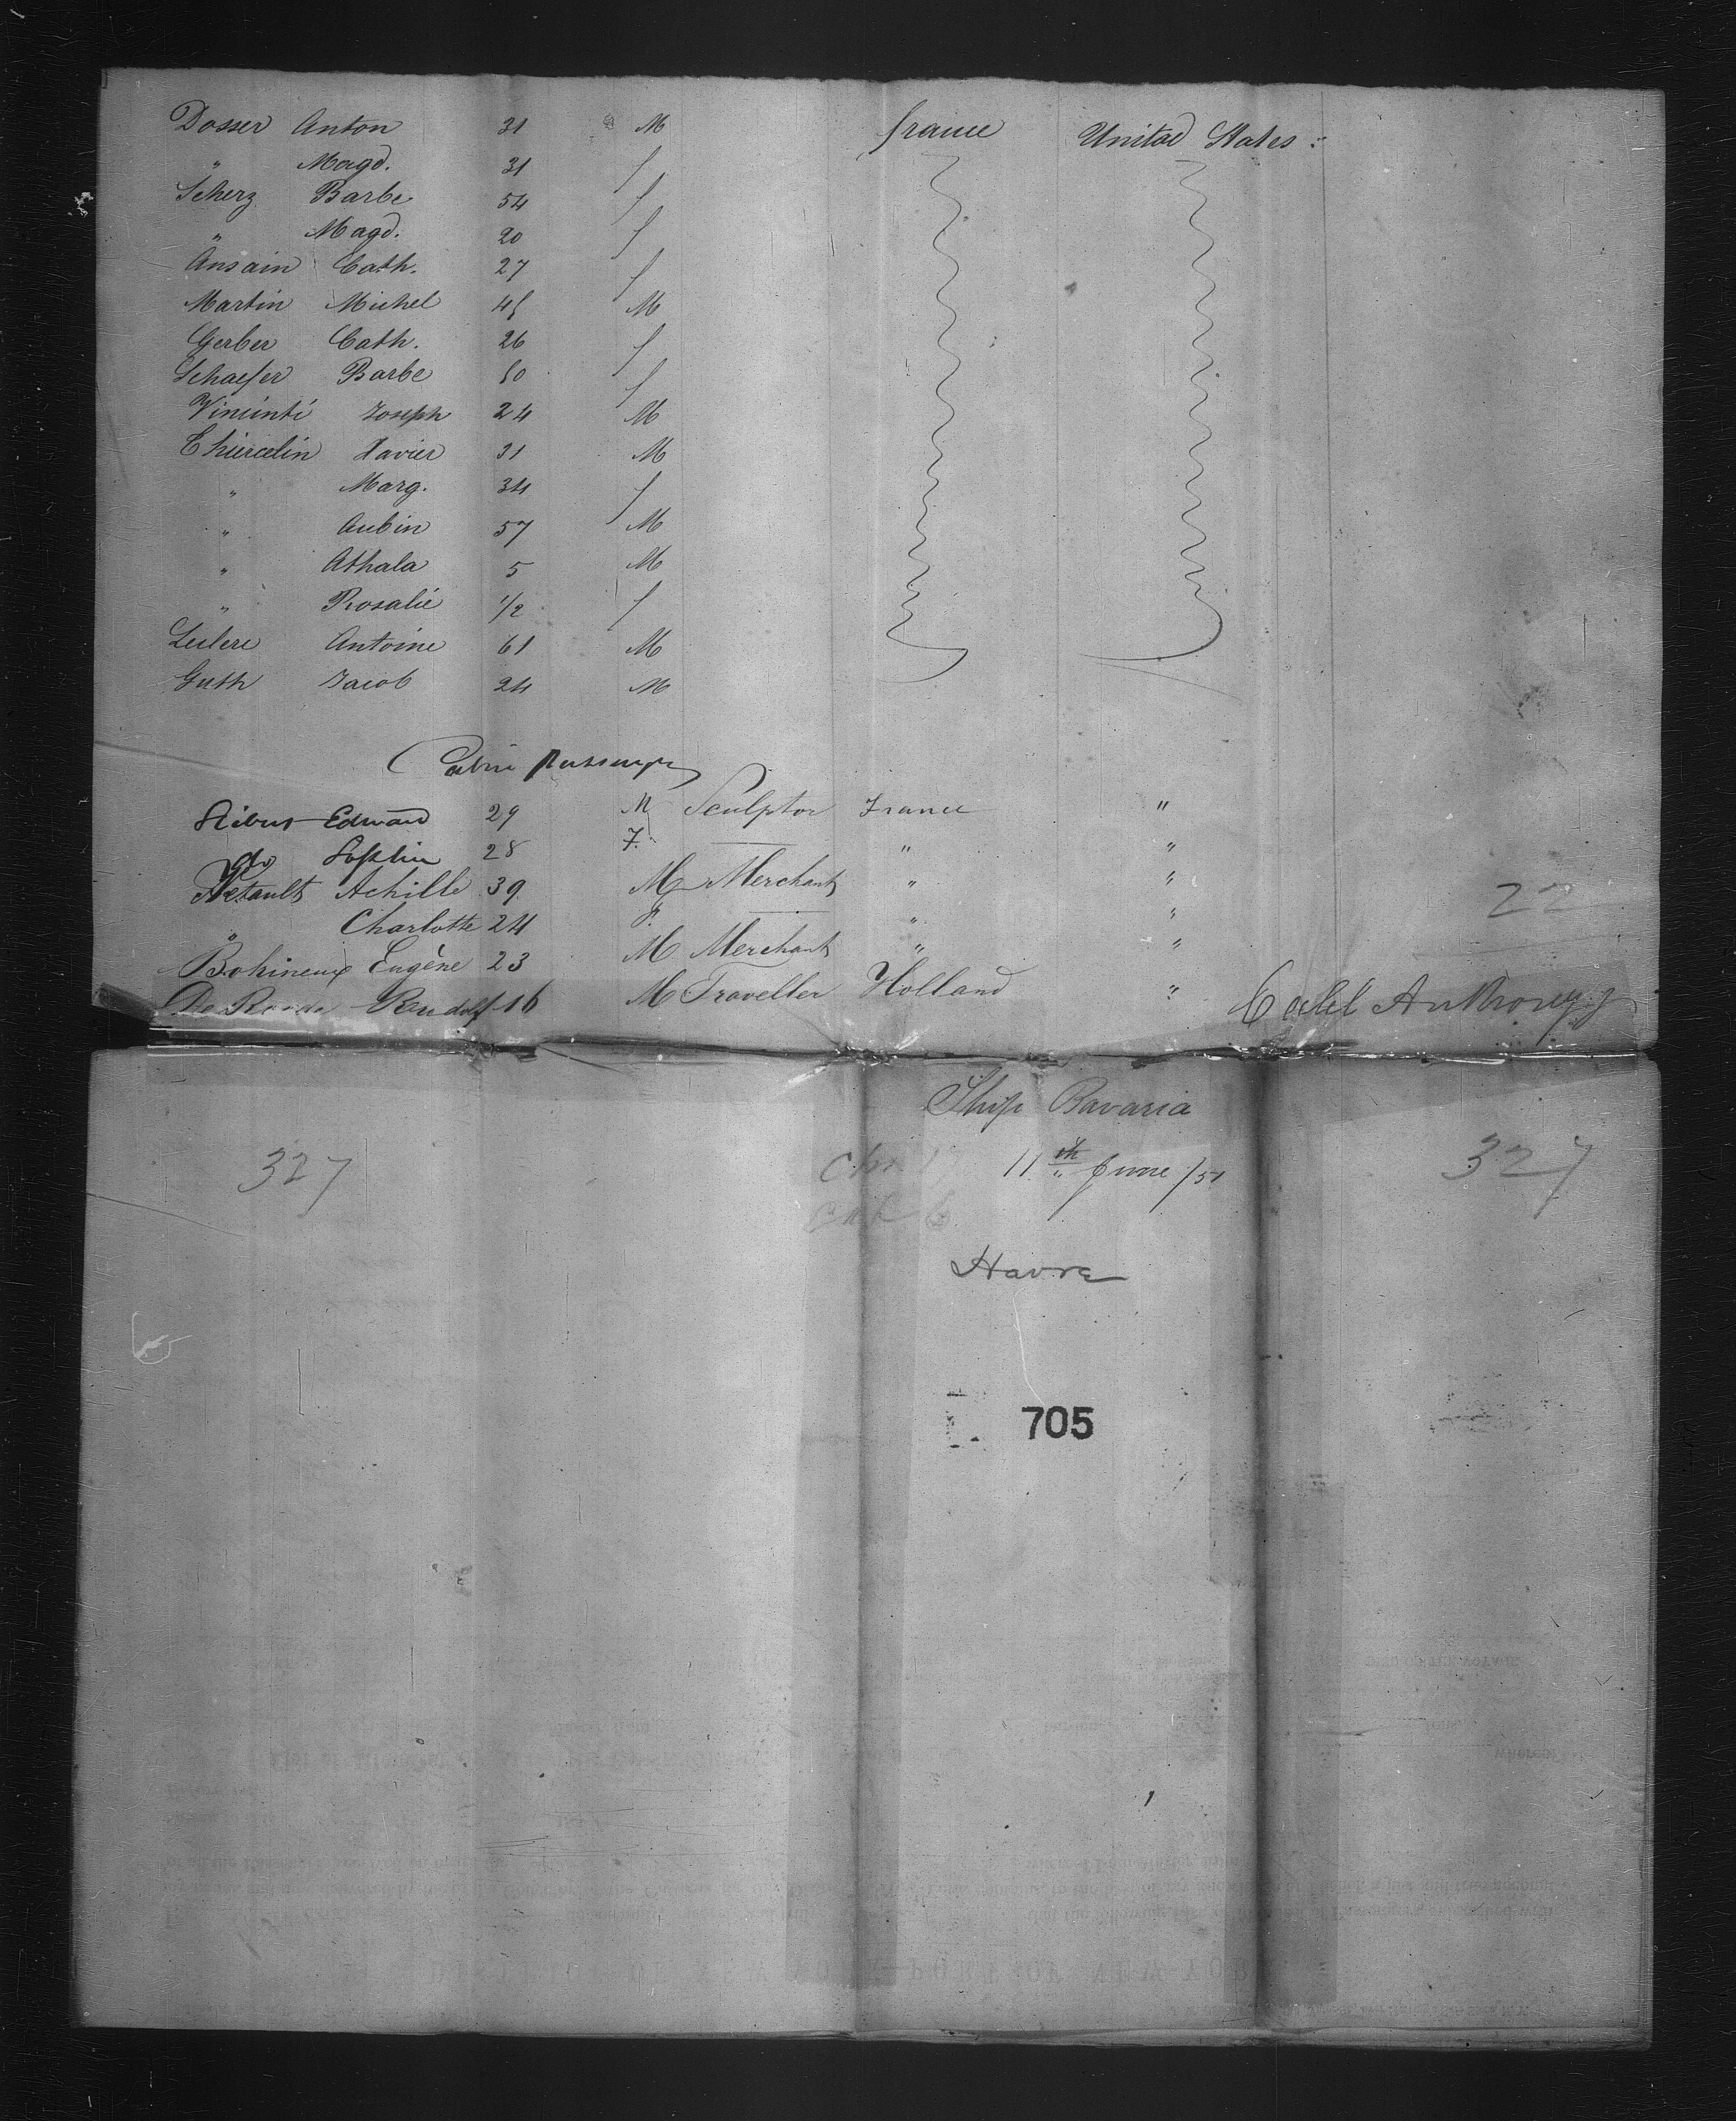 Dosser Anton 31 M france United States :
" Magd. 31 f
Scherz Barbe 54 f
" Magd. 20 f
Ansain Cath. 27 f
Martin Michel 45 M
Gerber Cath. 26 f
Schaefer Barbe 50 f
Vincinti Joseph 24 M
Thiercelin Xavier 31 M
" Marg. 34 f
" Aubin 57 M
" Athala 5 M
" Rosalie 1/2 f
Leclerc Antoine 61 M
Guth Jacob 24 M
Cabin Passengers
Edward 29 M Sculptor France "
do Sophia 28 F. — " "
Achille 39 M Merchant " "
" Charlotte 24 F. — " "
22
Eugène 23 M Merchant " "
De Ronde Rudolf 16 M Traveller Holland " Caleb Anthony
Ship Bavaria
327 11th June /51 327
Havre
705